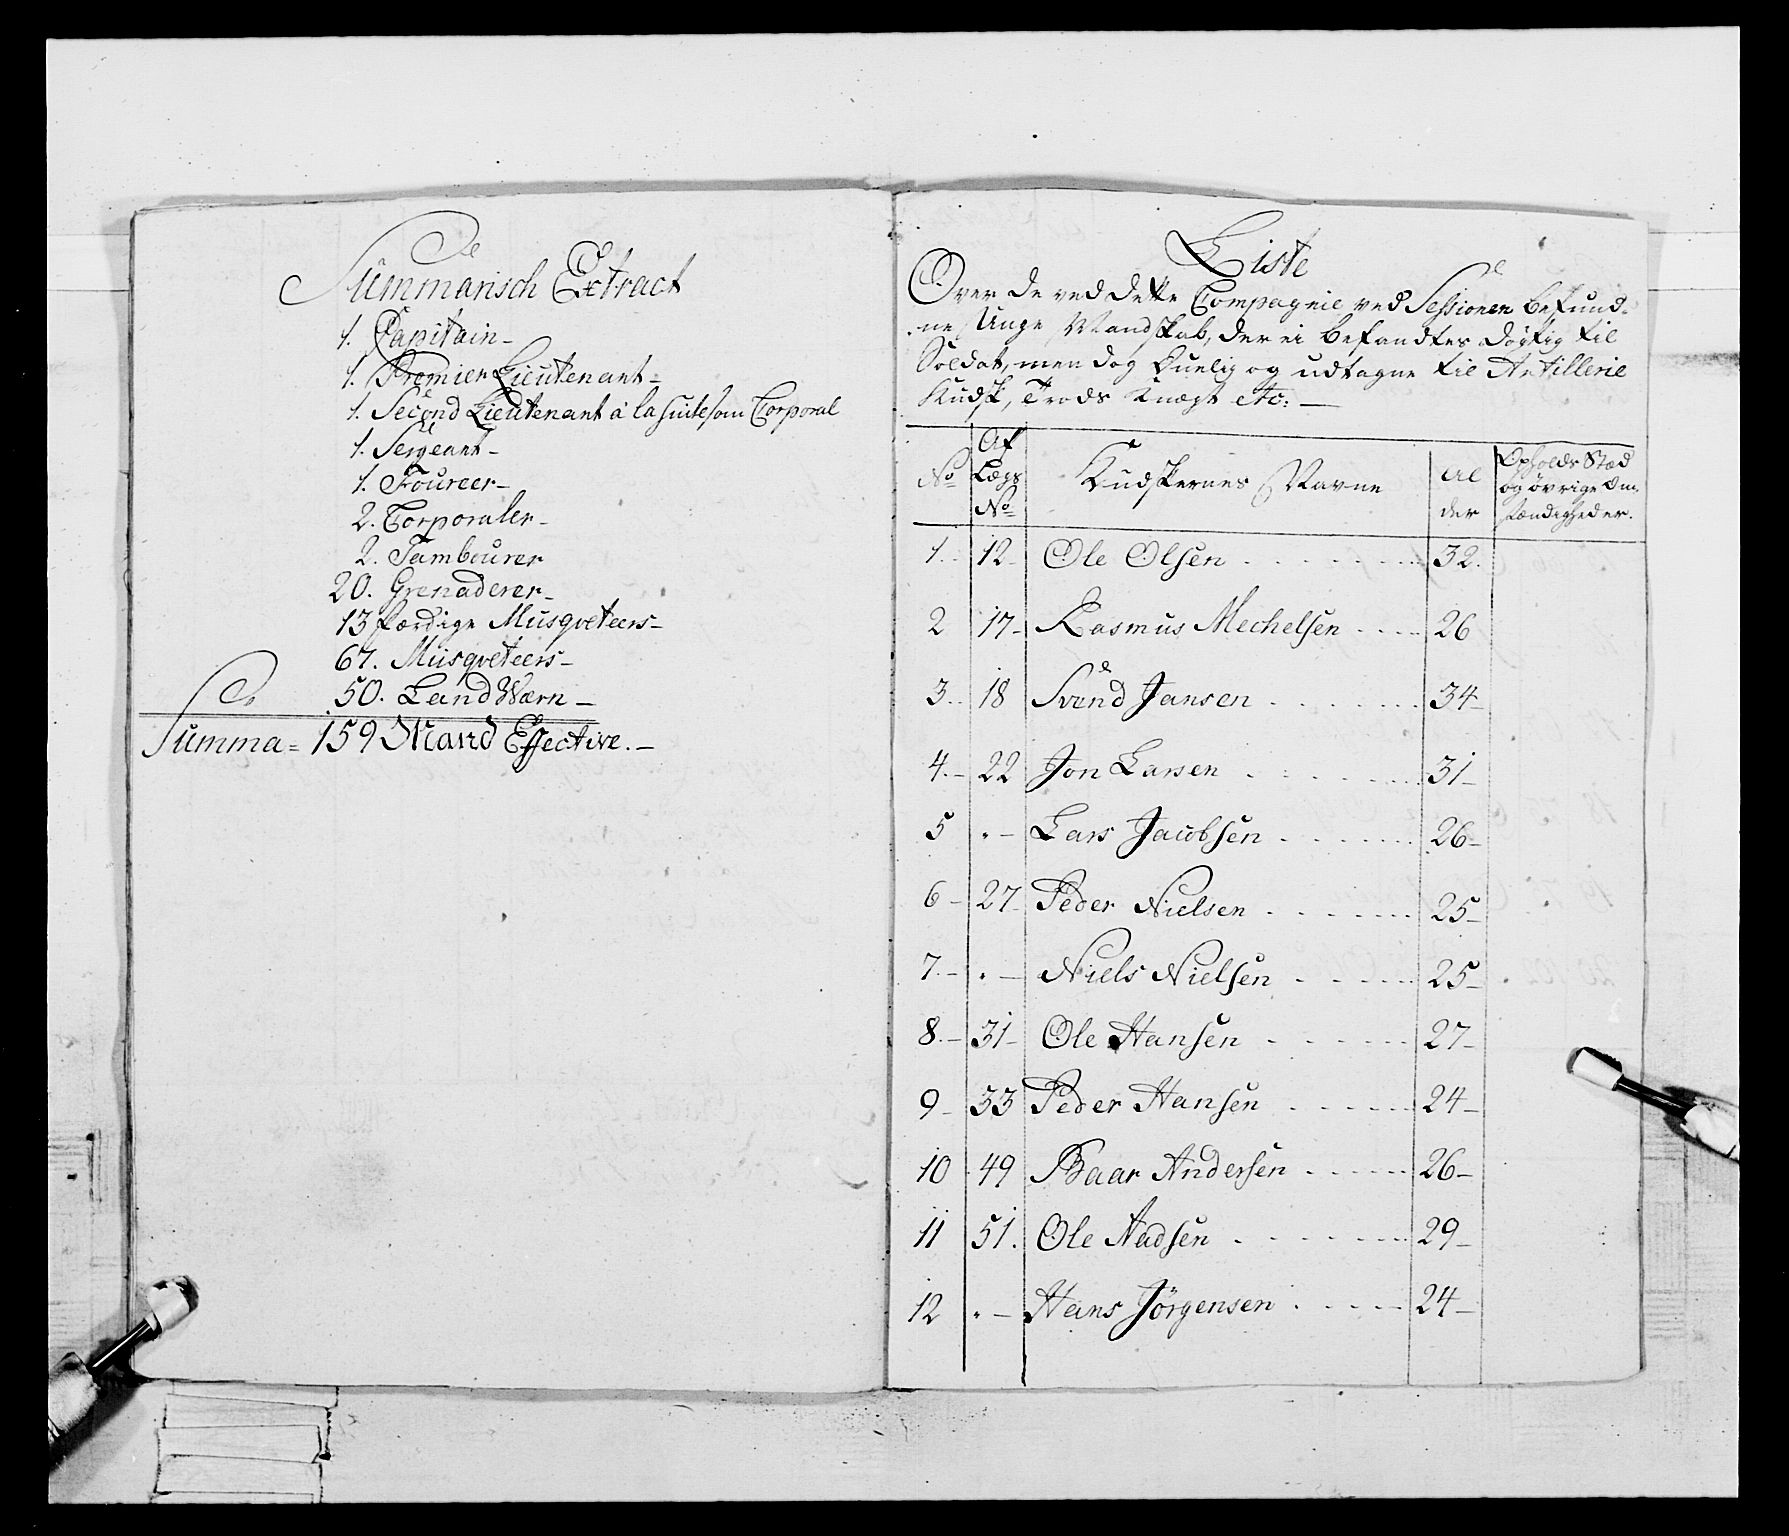 Summarisch Extract
1. Capitain
1. Premier Lieutenant
1. Second Lieutenant à la suite som Corporal
1. Sergeant
1. Foureer
2. Corporaler
2. Tambourer
20. Grenaderer
13 færdige Musqveteers
67. Musqveteers
50. Land Wærn
Summa = 159 Mand Effective.
Liste
Over de ved dette Compagnie ved Sessionen befund-
ne Unge Mandskab, der ei befandtes døgtig til
Soldat, men dog Duelig og udtagne til Artillerie
Kudsk, Trods Knægt etc:
No Af Lægs No Kudskernes Navne Alder Opholds Stæd og øvrige Omstændigheder.
1. 12 Ole Olsen 32.
2 17 Rasmus Mechelsen 26
3. 18 Svend Jansen 34
4. 22 Jon Larsen 31
5 " Lars Jacobsen 26
6 27 Peder Nielsen 25
7. " Niels Nielsen 25
8. 31 Ole Hansen 27
9 33 Peder Hansen 24
10 49 Baar Andersen 26
11 51. Ole Aadsen 29
12 " Hans Jörgensen 24